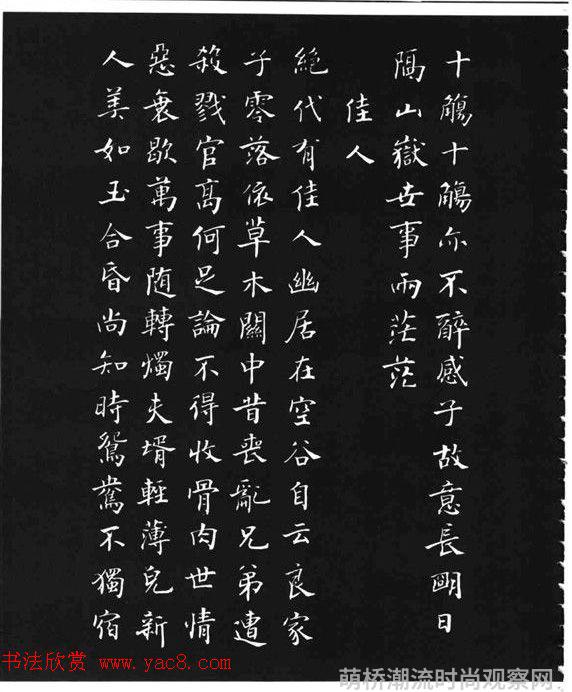 十觴十觴亦不醉感子故意長明日
隔山嶽世事兩茫茫
佳人
絕代有佳人幽居在空谷自云良家
子零落依草木關中昔喪亂兄弟遭
殺戮官高何足論不得收骨肉世情
惡衰歇萬事随轉燭夫壻輕薄兒新
人美如玉合昏尚知時鴛鴦不獨宿
书法欣赏 www.yac8.com
萌桥潮流时尚观察网